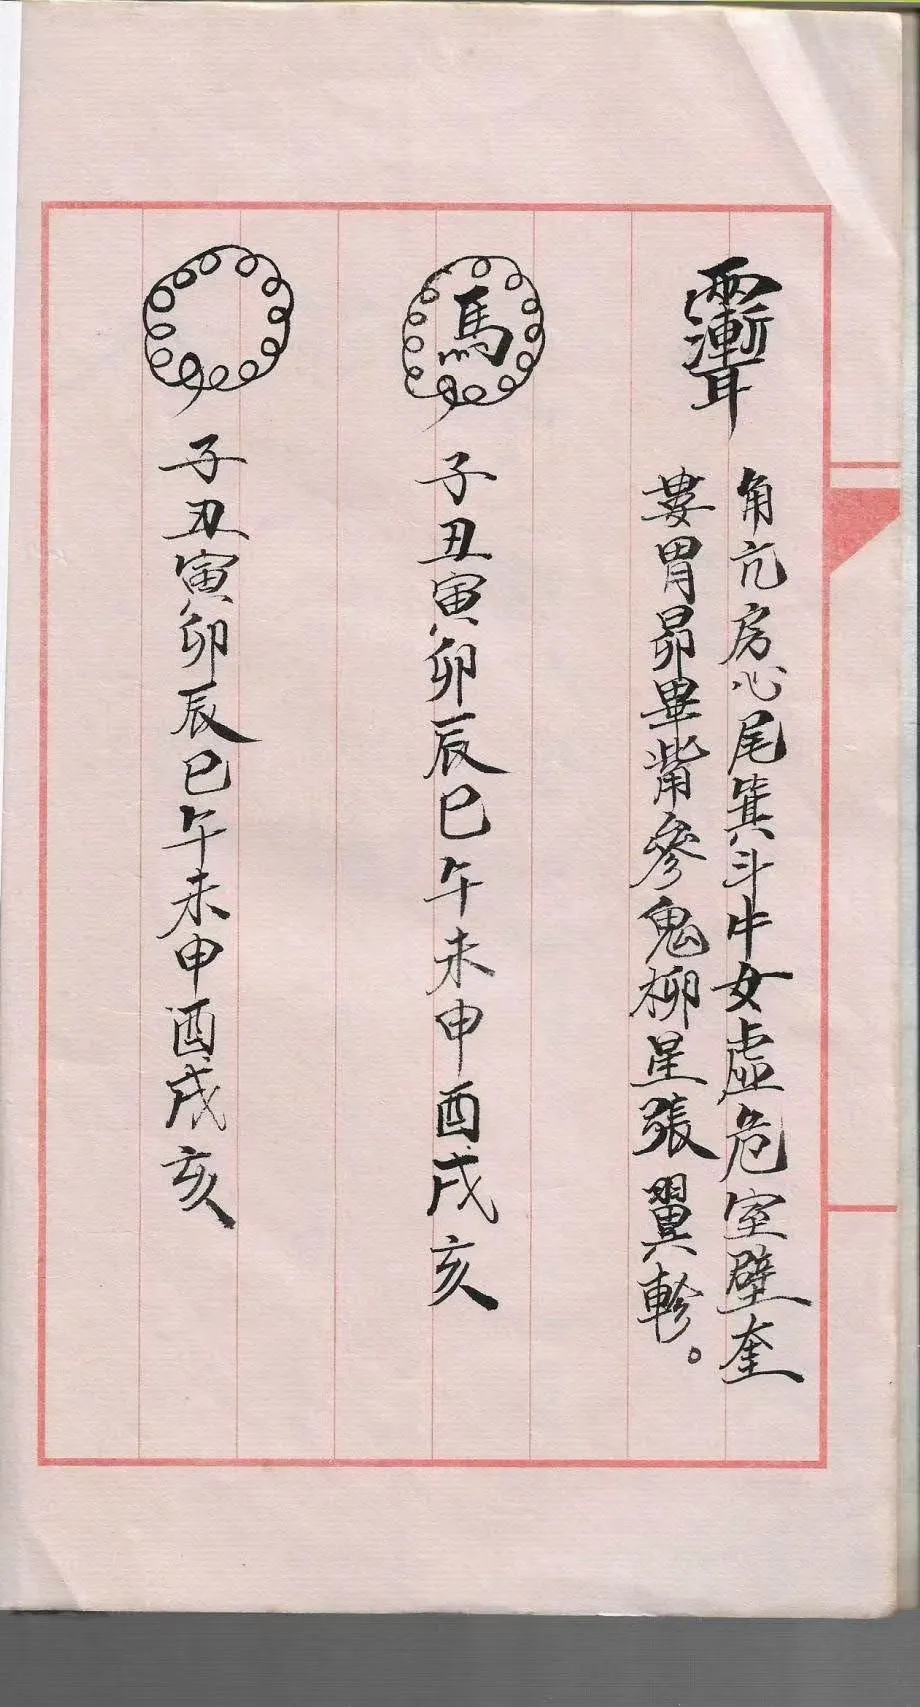 ⿱雨聻
角亢房心尾箕斗牛女虛危室壁奎
婁胃昴畢觜參鬼柳星張翼軫。
馬
子丑寅卯辰巳午未申酉戌亥
子丑寅卯辰巳午未申酉戌亥